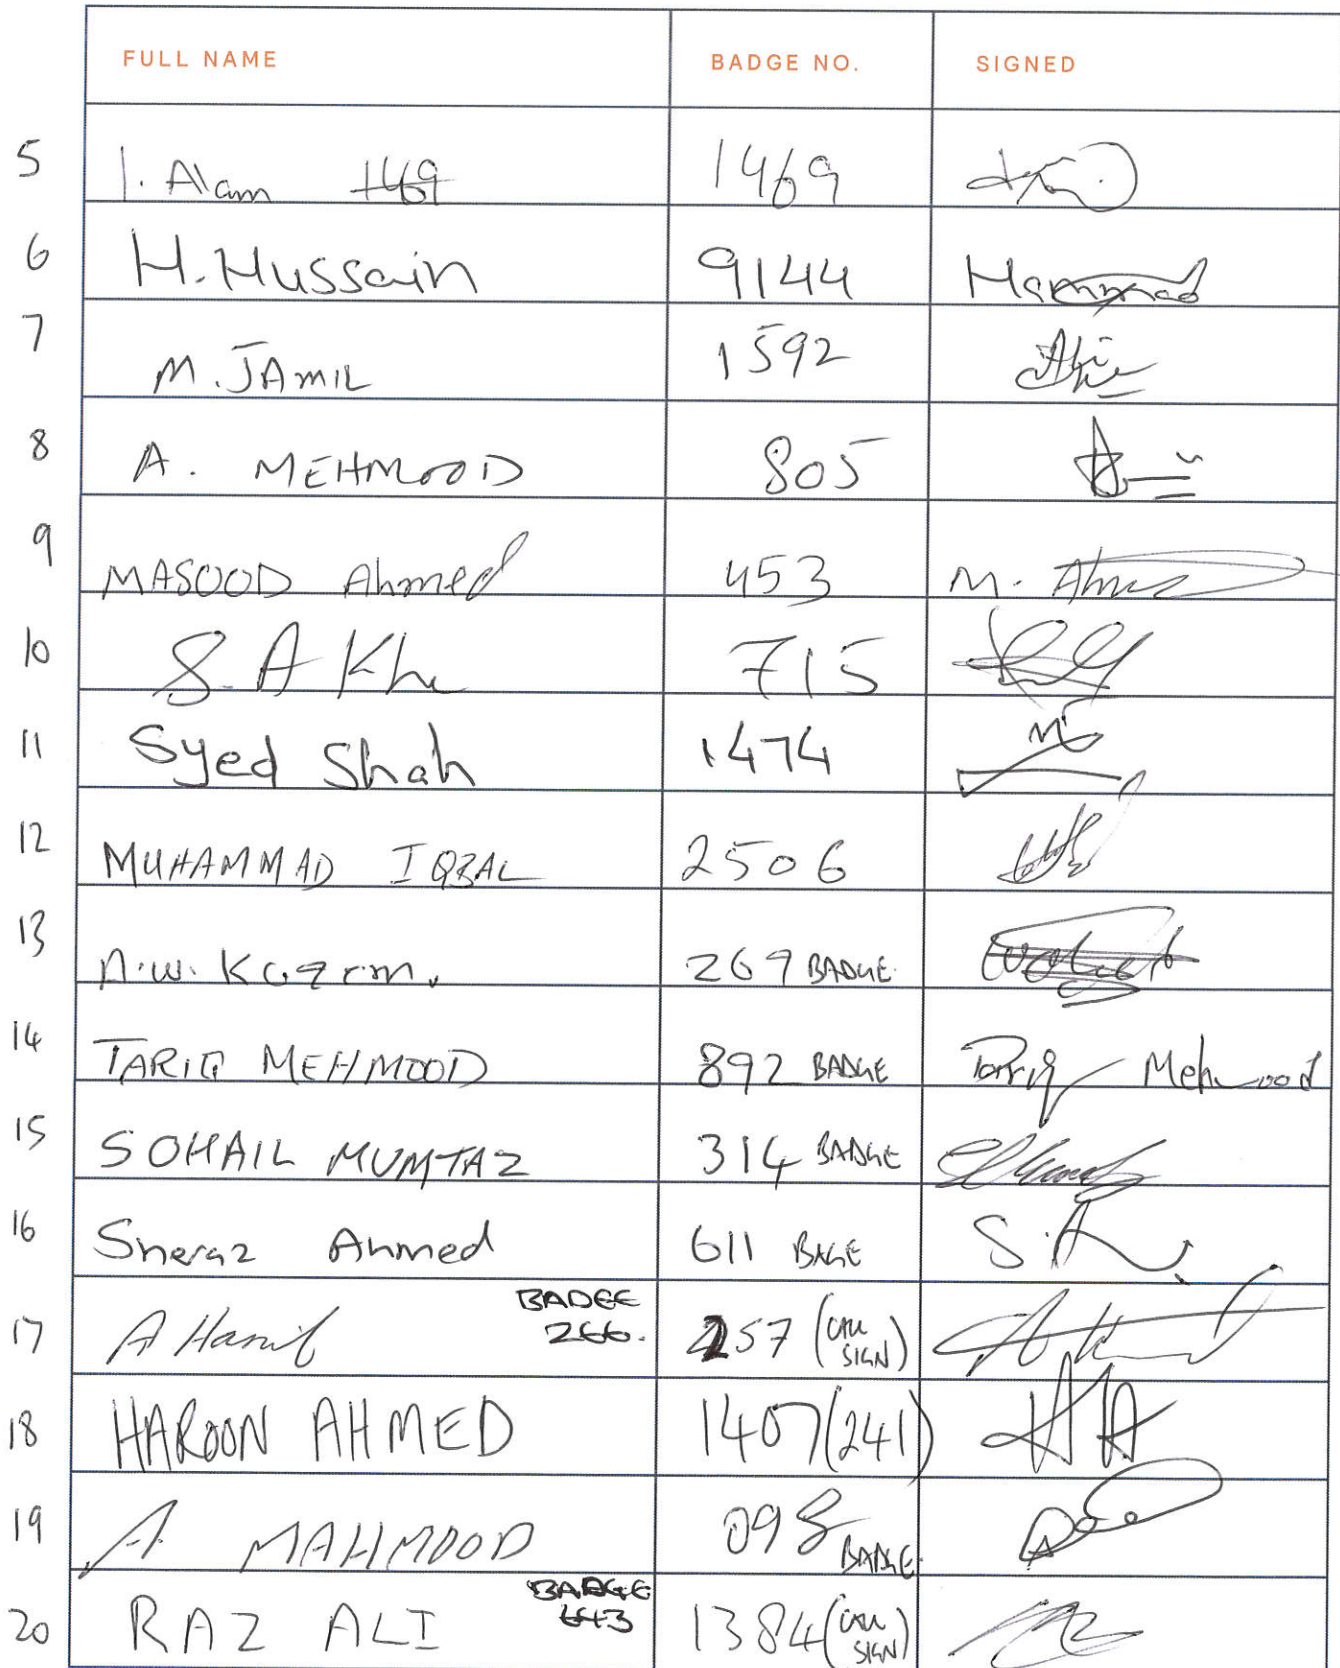 FULL NAME BADGE NO. SIGNED
5 I. Alam 1469 1469
6 H. Hussain 9144 Hammad
7 M. JAMIL 1592
8 A. MEHMOOD 805
9 MASOOD Ahmed 453 M. Ahmed
10 S. A Kh 715
11 Syed Shah 1474
12 MUHAMMAD IQBAL 2506
13 N.W. Kazem. 269 BADGE
14 TARIQ MEHMOOD 892 BADGE Tariq Mehmood
15 SOHAIL MUMTAZ 314 BADGE
16 Sheraz Ahmed 611 BAGE S.A
17 A Hanif BADGE 266. 257 (CALL SIGN)
18 HAROON AHMED 1407 (241) HA
19 A MAHMOOD 098 BADGE
20 RAZ ALI BADGE 643 1384 (CALL SIGN)